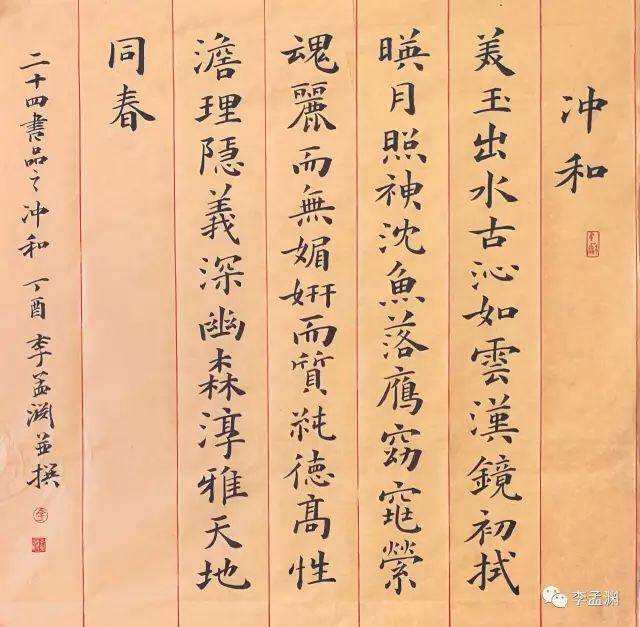 冲和
美玉出水古沁如雲漢鏡初拭
暎月照神沈魚落鴈窈窕縈
魂麗而無媚姸而質純徳髙性
澹理隱義深幽森淳雅天地
同春
二十四書品之冲和 丁酉 李孟渊並撰
李孟渊